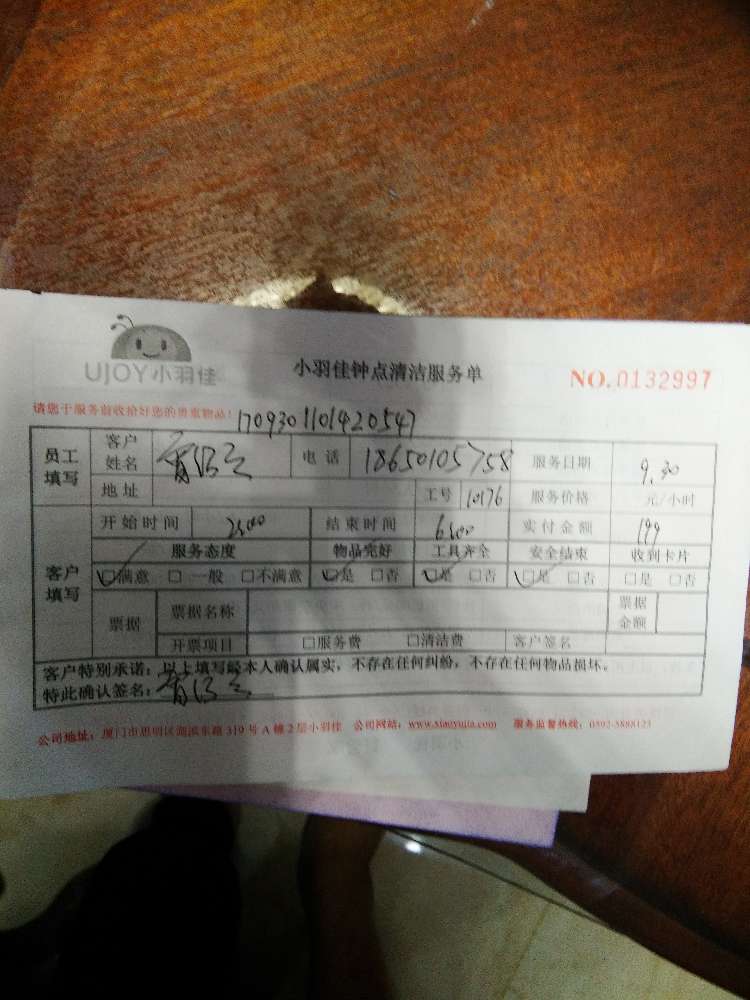 UJOY小羽佳
小羽佳钟点清洁服务单
NO.0132997
请您于服务前收拾好您的贵重物品！
1709301101420547
员工填写 客户姓名 电话 18650105758 服务日期 9.30
地址 工号 10176 服务价格 元/小时
客户填写 开始时间 结束时间 实付金额 199
服务态度 物品完好 工具齐全 安全结束 收到卡片
☑满意 □一般 □不满意 ☑是 □否 ☑是 □否 ☑是 □否 □是 □否
票据 票据名称 票据金额
开票项目 □服务费 □清洁费 客户签名
客户特别承诺：以上填写经本人确认属实，不存在任何纠纷，不存在任何物品损坏。
特此确认签名：
公司地址：厦门市思明区湖滨东路319号A幢2层小羽佳 公司网站：www.xiaoyujia.com 服务监督热线：0592-5888123